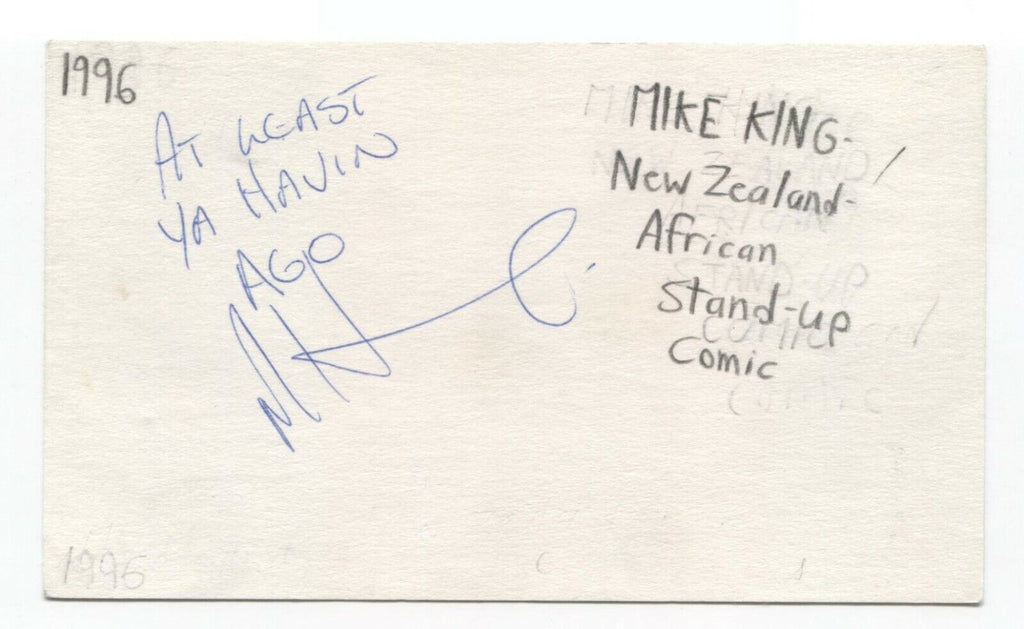 1996
AT LEAST
YA HAVIN
AGO
MIKE KING-
New Zealand-
African
Stand-up
Comic
1996